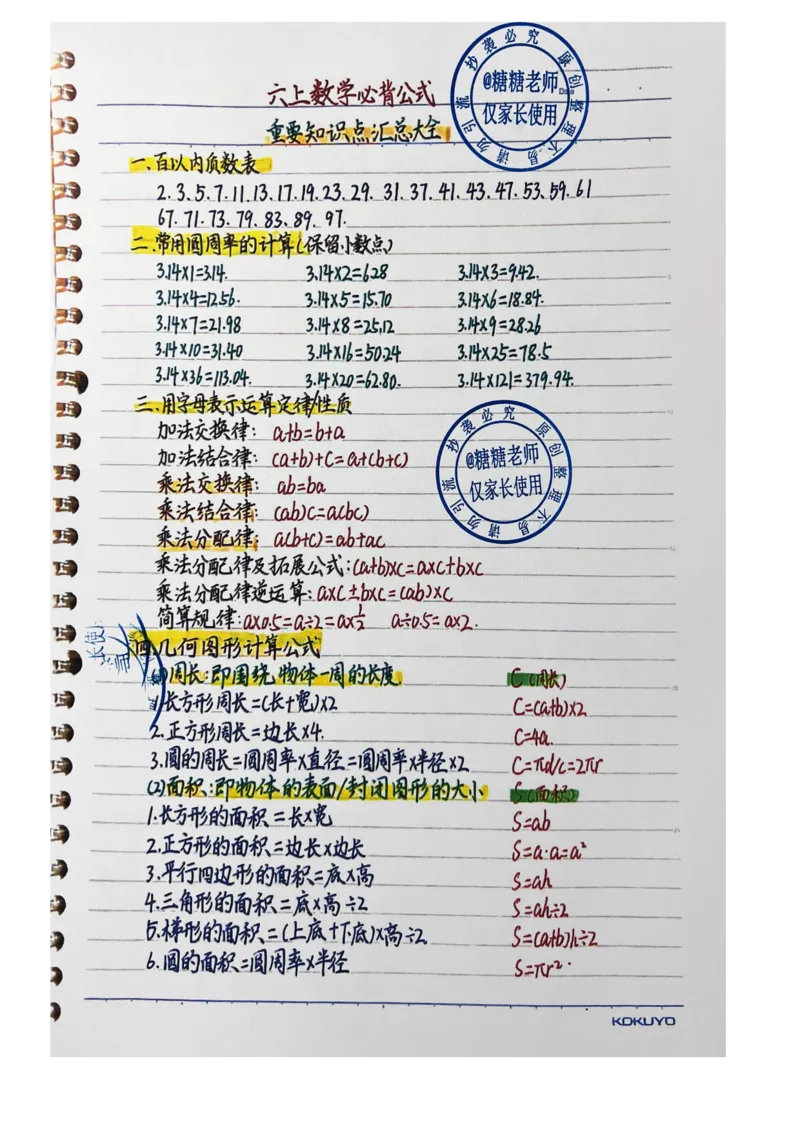 六上数学必背公式
重要知识点汇总大全
抄袭必究 原创整理不易 请勿引流
@糖糖老师
仅家长使用
一、百以内质数表
2、3、5、7、11、13、17、19、23、29、31、37、41、43、47、53、59、61
67、71、73、79、83、89、97、
二、常用圆周率的计算(保留小数点)
3.14×1=3.14. 3.14×2=6.28 3.14×3=9.42.
3.14×4=12.56. 3.14×5=15.70 3.14×6=18.84.
3.14×7=21.98 3.14×8=25,12 3.14×9=28.26
3.14×10=31.40 3.14×16=50.24 3.14×25=78.5
3.14×36=113.04. 3.14×20=62.80. 3.14×121=379.94.
三、用字母表示运算定律/性质
加法交换律: a+b=b+a
加法结合律: (a+b)+c=a+(b+c)
乘法交换律: ab=ba
乘法结合律: (ab)c=a(bc)
乘法分配律: a(b+c)=ab+ac
抄袭必究 原创整理不易 请勿引流
@糖糖老师
仅家长使用
乘法分配律及拓展公式:(a+b)×c=a×c+b×c
乘法分配律逆运算:a×c±b×c=(ab)×c
简算规律:a×0.5=a÷2=a×1/2 a÷0.5=a×2.
四、几何图形计算公式
(1)周长:即围绕物体一周的长度. C(周长)
1.长方形周长=(长+宽)×2 C=(a+b)×2
2.正方形周长=边长×4. C=4a.
3.圆的周长=圆周率×直径=圆周率×半径×2 C=πd/c=2πr
(2)面积:即物体的表面/封闭图形的大小 S(面积)
1.长方形的面积=长×宽 S=ab
2.正方形的面积=边长×边长 S=a·a=a²
3.平行四边形的面积=底×高 S=ah
4.三角形的面积=底×高÷2 S=ah÷2
5.梯形的面积=(上底+下底)×高÷2 S=(a+b)h÷2
6.圆的面积=圆周率×半径 S=πr²
KOKUYO